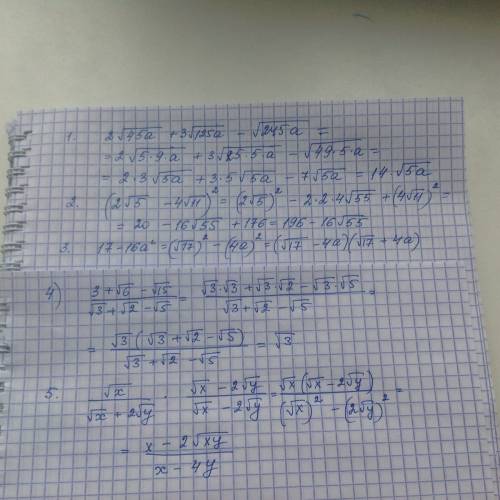 1. 2√45a + 3√125a − √245a =
= 2√5·9·a + 3√25·5a − √49·5·a =
= 2·3√5a + 3·5√5a − 7√5a = 14·√5a
2. (2√5 − 4√11)² = (2√5)² − 2·2·4√55 + (4√11)² =
= 20 − 16√55 + 176 = 196 − 16√55
3. 17 − 16a² = (√17)² − (4a)² = (√17 − 4a)(√17 + 4a)
4) (3 + √6 − √15)/(√3 + √2 − √5) = (√3·√3 + √3·√2 − √3·√5)/(√3 + √2 − √5) =
= √3(√3 + √2 − √5)/(√3 + √2 − √5) = √3
5. √x/(√x + 2√y) · (√x − 2√y)/(√x − 2√y) = √x(√x − 2√y)/((√x)² − (2√y)²) =
= (x − 2√xy)/(x − 4y)